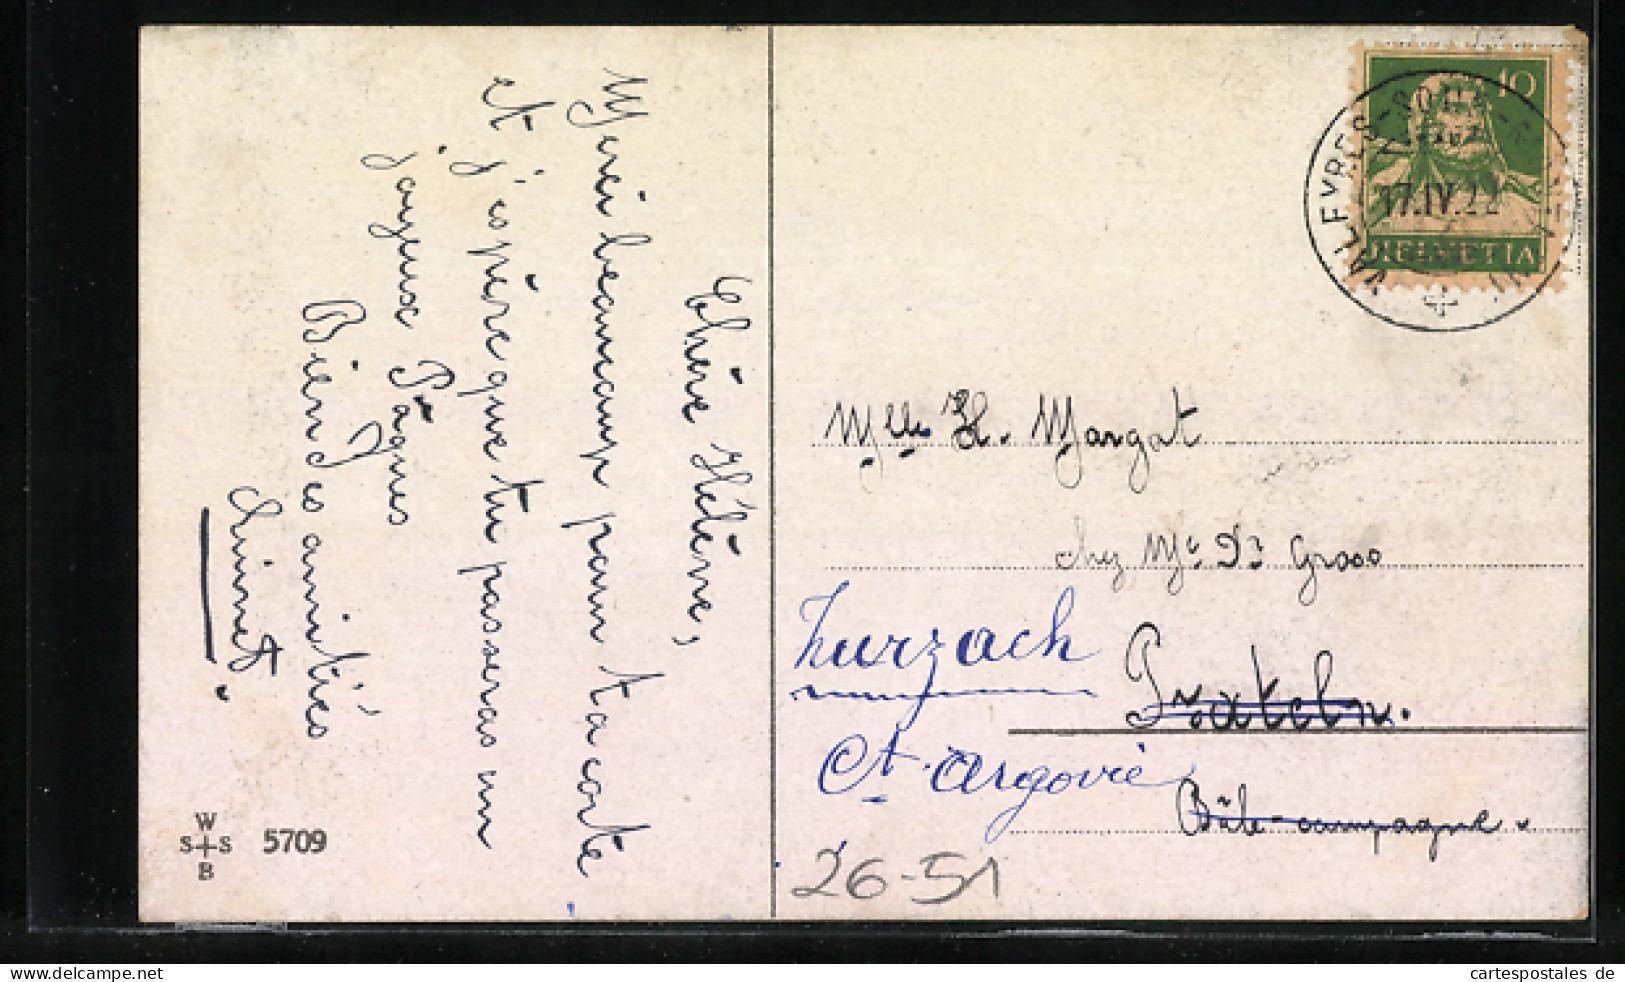 Chère Hélène,
Merci beaucoup pour ta carte
et j'espère que tu passeras un
joyeux Pâques
Bien des amitiés
W
S S
B
5709
10
VALLEYRES-SOUS-
17.IV.22
HELVETIA
Mlle H. Margot
chez Mr Dr Gross
Zurzach
Pratteln.
Ct. Argovie
Bâle-campagne
26-51
© Bartko-Reher-GbR
cartespostales de